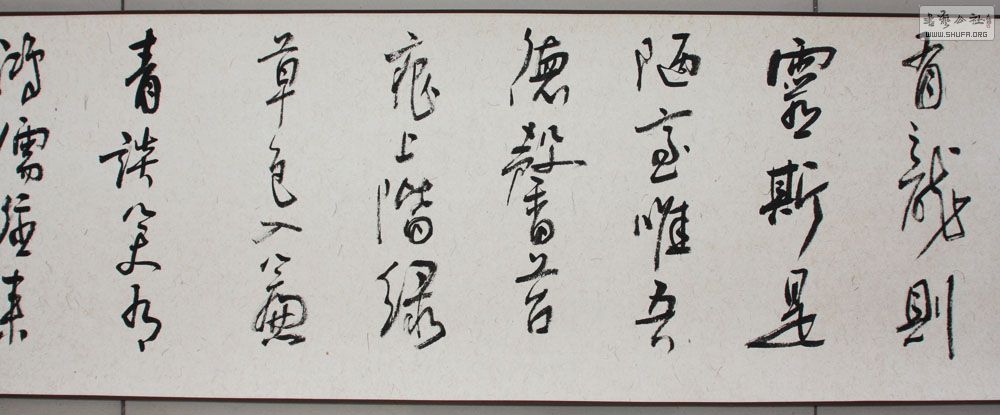 有龍則
靈斯是
陋室唯吾
德馨苔
痕上階緑
草色入簾
青談笑有
鴻儒往来
書艺公社
WWW.SHUFA.ORG